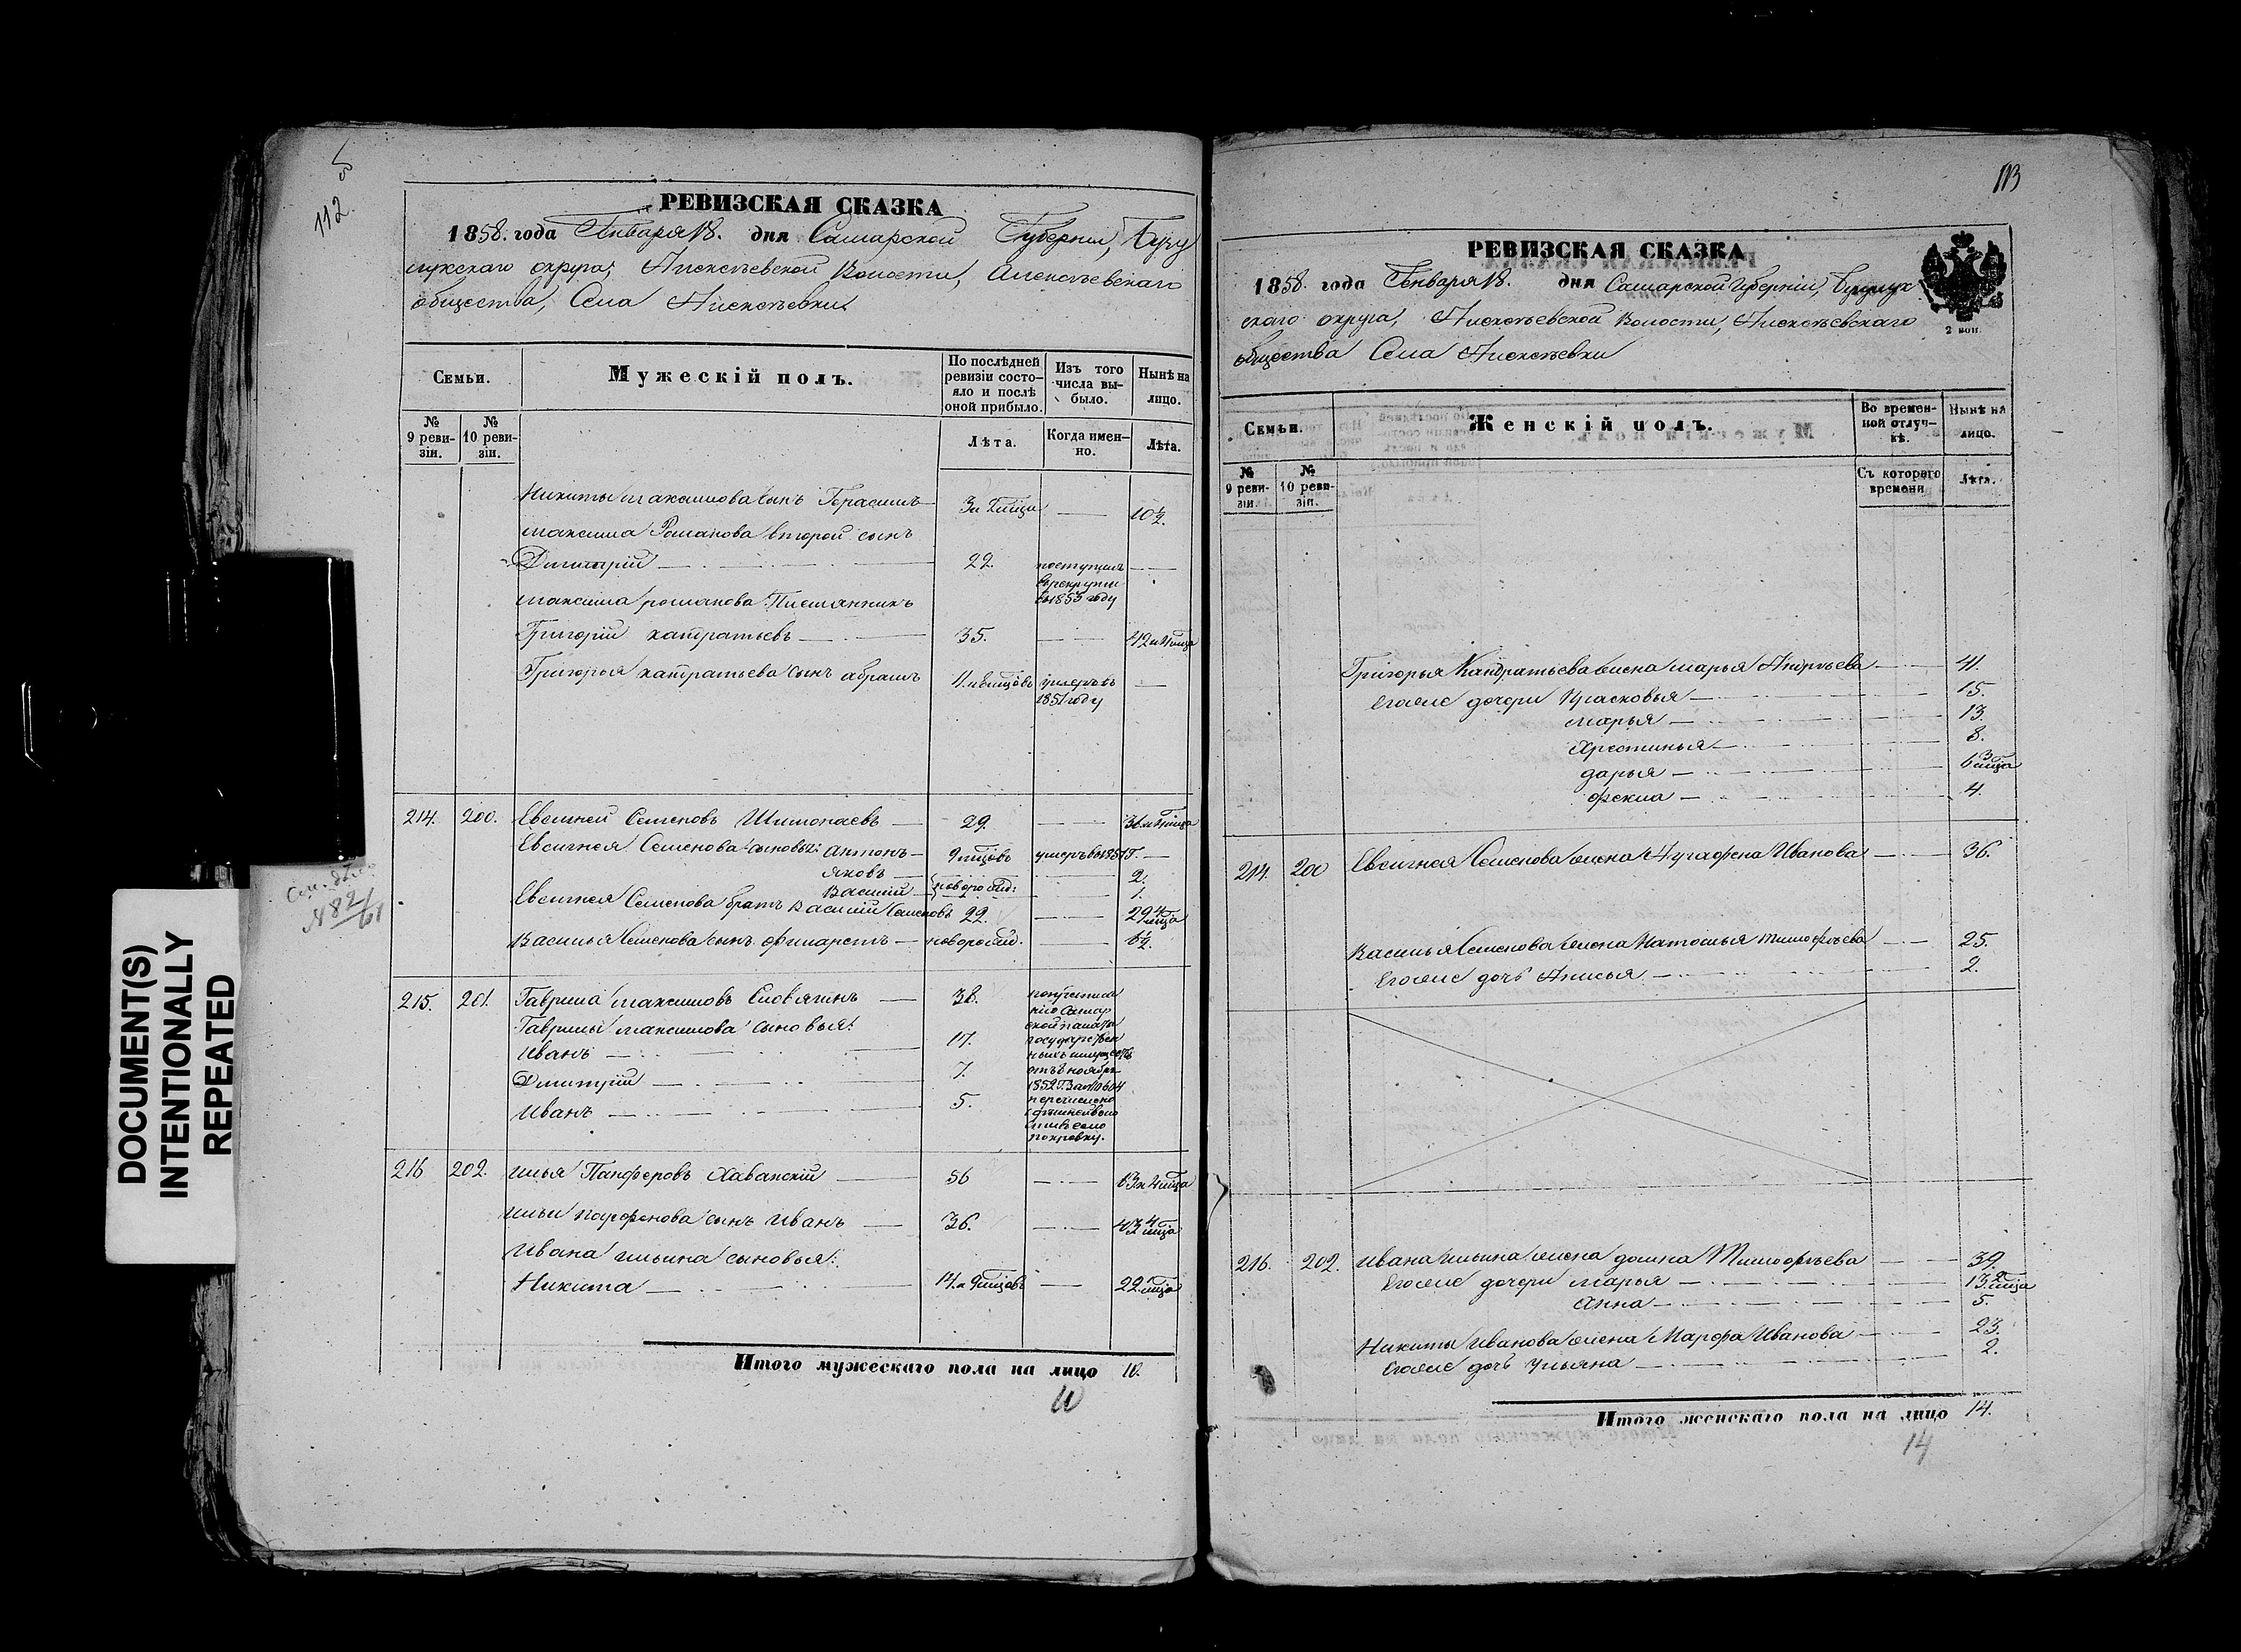 112
РЕВИЗСКАЯ СКАЗКА
1858. года Генваря 18. дня Самарской Губерніи, Бузу
лукскаго округа, Алексѣевской Волости, Алексѣевскаго
общества, Села Алексѣевки
Семьи.
Мужескій полъ.
По послѣдней ревизіи состо-яло и послѣ оной прибыло.
Изъ того числа вы-было.
Нынѣ на лицо.
№ 9 реви-зіи.
№ 10 реви-зіи.
Лѣта.
Когда имен-но.
Лѣта.
Никиты Максимова сынъ Герасимъ 3 и 2 мца 10 1/2.
Максима Романова второй сынъ
Дмитрій 22. поступилъ в рекруты в 1853 году
Максима романова Племянникъ
Григорій кандратьевъ 35. 42 и 4 мца
Григорья кандратьева сынъ абрамъ 11. мцовъ умеръ въ 1851 году
214. 200. Евсигней Семеновъ 29. 36 и 4 мца
Евсигнея Семенова сыновья: Антонъ 9 мцовъ умеръ въ 1851 Г.
яковъ 2.
Василій новорожд: 1.
Евсигнея Семенова братъ Василій Семеновъ 22. 29 4 мца
Василья Семенова сынъ филаретъ новорожд. 6 1/2.
215. 201. Гаврила максимовъ 38.
Гаврилы максимова сыновья:
Иванъ 17.
Дмитрій 7.
Иванъ 5.
по предписа
нію Самар
ской палаты
государствен
ныхъ имуществъ
отъ 6 ноября
1852 Г. За № 10604
перечислено
с семейство
покровку.
216 202. илья Панферовъ Хаванскій 56 63 и 4 мца
ильи парфенова сынъ Иванъ 36. 43 4 мца
Ивана ильина сыновья:
Никита 14. и 9 мцовъ 22. мца
Итого мужескаго пола на лицо 10.
10
№ 82/61
DOCUMENT(S)
INTENTIONALLY
REPEATED
113
РЕВИЗСКАЯ СКАЗКА
1858. года Генваря 18. дня Самарской Губерніи, Бузулук
скаго округа, Алексѣевской Волости, Алексѣевскаго
общества Села Алексѣевки
2 коп.
Семьи.
Женскій полъ.
Во времен-ной отлуч-кѣ.
Нынѣ на лицо.
№ 9 реви-зіи.
№ 10 реви-зіи.
Съ котораго времени.
Лѣта.
Григорья Кандратьева жена марья Андреева 41.
Егоже дочери Прасковья 15.
марья 13.
Христинья 8.
дарья 6 3 мца
фекла 4.
214. 200 Евсигнея Семенова жена Аграфена Иванова 36.
Василья Семенова жена Наталья тимофѣева 25.
Егоже дочь Анисья 2.
216. 202. Ивана ильина жена домна Тимофѣева 39.
Егоже дочери марья 13. 2 мца
Анна 5.
Никиты Иванова жена Марфа Иванова 23.
Егоже дочь ульяна 2.
Итого женскаго пола на лицо 14.
14